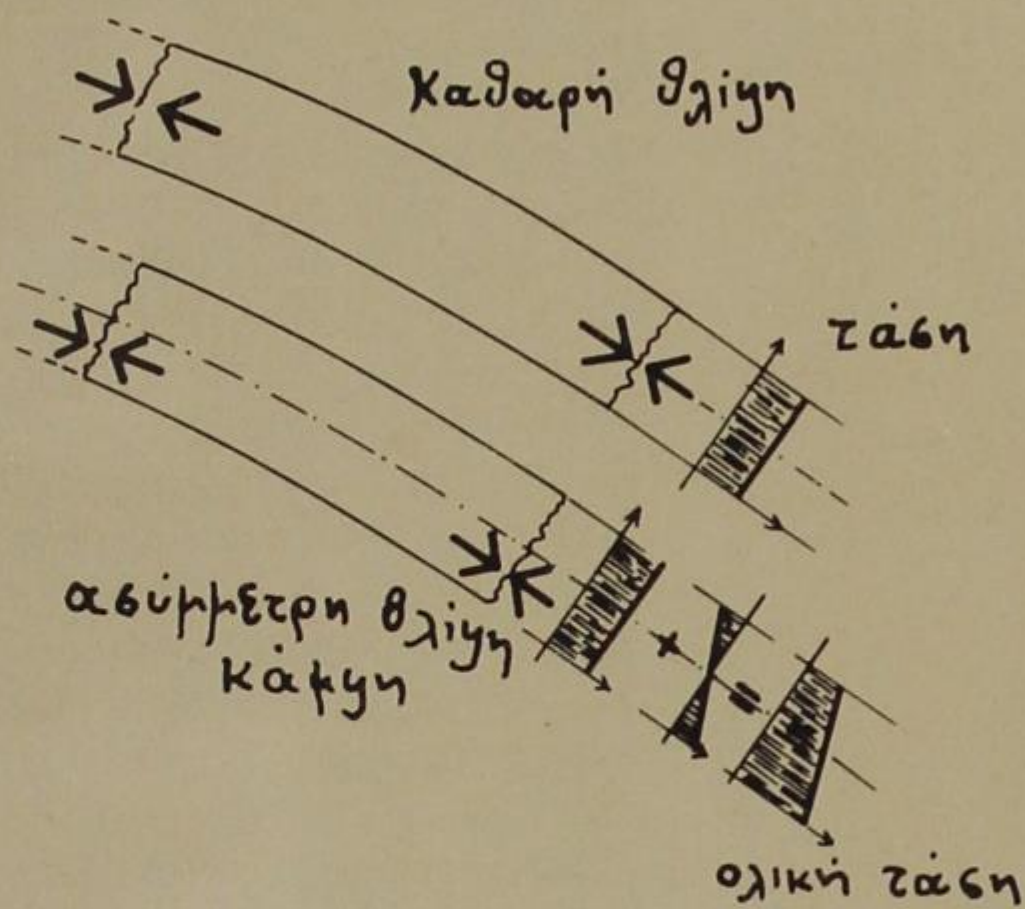 καθαρή θλίψη
τάση
ασύμμετρη θλίψη
κάμψη
ολική τάση